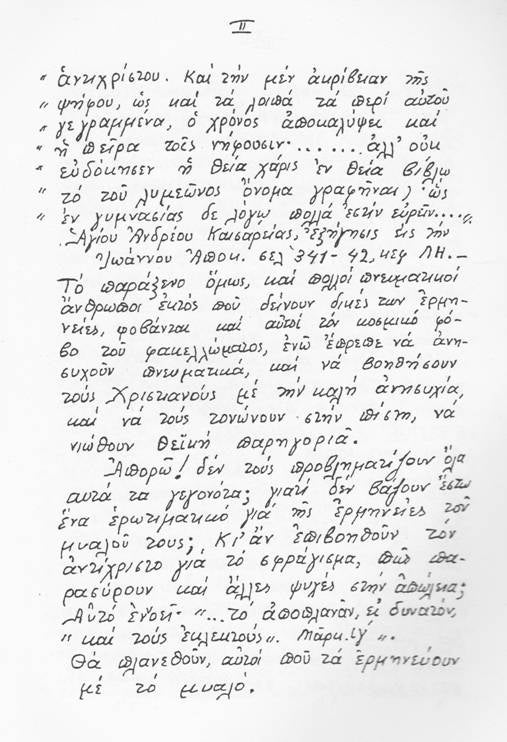 II
„ ἀντιχρίστου. Καί τήν μέν ἀκρίβειαν τῆς
„ ψήφου, ὡς καί τά λοιπά τά περί αὐτοῦ
„ γεγραμμένα, ὁ χρόνος ἀποκαλύψει καί
„ ἡ πεῖρα τοῖς νήφουσιν........ἀλλ' οὐκ
„ εὐδόκησεν ἡ θεία χάρις ἐν θεία βίβλω
„ τό τοῦ λυμεῶνος ὄνομα γραφῆναι, ὡς
„ ἐν γυμνασίας δε λόγω πολλά ἐστίν εὑρεῖν....„
Ἁγίου Ἀνδρέου Καισαρείας, ἐξήγησις εἰς τήν
Ἰωάννου Ἀποκ. σελ 341-42, κεφ ΛΗ.—
Τό παράξενο ὅμως, καί πολλοί πνευματικοί
ἄνθρωποι ἐκτός πού δείνουν δικές των ἑρμη-
νείες, φοβάνται καί αὐτοί τόν κοσμικό φό-
βο τοῦ φακελλώματος, ἐνῶ ἔπρεπε νά ἀνη-
συχοῦν πνευματικά, καί νά βοηθήσουν
τούς Χριστιανούς μέ τήν καλή ἀνησυχία,
καί νά τούς τονώνουν στήν πίστη, νά
νιώθουν θεϊκή παρηγοριά.
Ἀπορῶ! δέν τούς προβληματίζουν ὅλα
αυτά τα γεγονότα; γιατί δέν βάζουν ἔστω
ἕνα ἐρωτιματικό γιά τῆς ἑρμηνείες τοῦ
μυαλοῦ τους; Κι' ἄν ἐπιβοηθοῦν τόν
ἀντίχριστο γιά τό σφράγισμα, πῶς πα-
ρασύρουν καί ἄλλες ψυχές στήν ἀπώλεια;
Αὐτό ἐνοεῖ- „...τό ἀποπλανᾶν, εἰ δυνατόν,
„ καί τούς ἐκλεκτούς„. Μάρκ. ιγ´ „.
Θά πλανεθοῦν, αὐτοί πού τά ἑρμηνεύουν
μέ τό μυαλό.